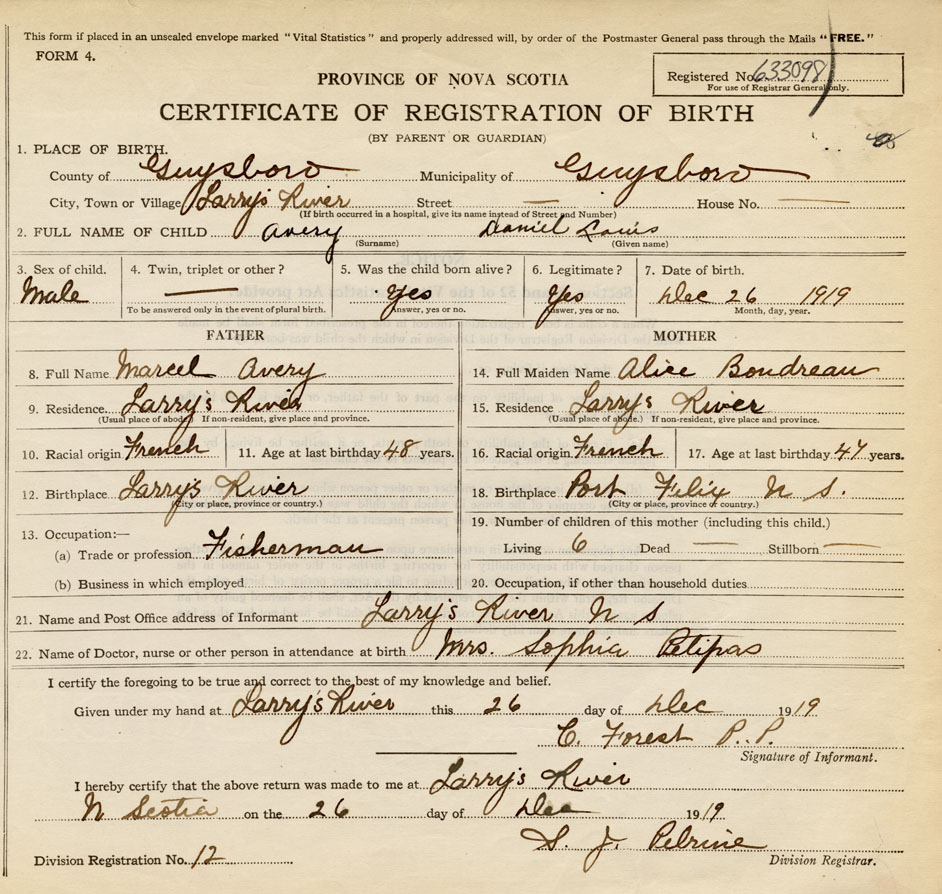 This form if placed in an unsealed envelope marked "Vital Statistics" and properly addressed will, by order of the Postmaster General pass through the Mails "FREE."
FORM 4.
PROVINCE OF NOVA SCOTIA
Registered No. 633098
For use of Registrar General only.
CERTIFICATE OF REGISTRATION OF BIRTH
(BY PARENT OR GUARDIAN)
1. PLACE OF BIRTH.
County of Guysboro Municipality of Guysboro
City, Town or Village Larry's River Street — House No. —
(If birth occurred in a hospital, give its name instead of Street and Number)
2. FULL NAME OF CHILD Avery Daniel Louis
(Surname) (Given name)
3. Sex of child. 4. Twin, triplet or other? 5. Was the child born alive? 6. Legitimate? 7. Date of birth.
Male — Yes Yes Dec 26 1919
To be answered only in the event of plural birth. Answer, yes or no. Answer, yes or no. Month, day, year.
FATHER
8. Full Name Marcel Avery
9. Residence Larry's River
(Usual place of abode) If non-resident, give place and province.
10. Racial origin French 11. Age at last birthday 48 years.
12. Birthplace Larry's River
(City or place, province or country.)
13. Occupation:—
(a) Trade or profession Fisherman
(b) Business in which employed
MOTHER
14. Full Maiden Name Alice Boudreau
15. Residence Larry's River
(Usual place of abode.) If non-resident, give place and province.
16. Racial origin French 17. Age at last birthday 47 years.
18. Birthplace Port Felix N S.
(City or place, province or country.)
19. Number of children of this mother (including this child.)
Living 6 Dead — Stillborn —
20. Occupation, if other than household duties
21. Name and Post Office address of Informant Larry's River N S
22. Name of Doctor, nurse or other person in attendance at birth Mrs. Sophia Petipas
I certify the foregoing to be true and correct to the best of my knowledge and belief.
Given under my hand at Larry's River this 26 day of Dec 1919
C. Forest P.P.
Signature of Informant.
I hereby certify that the above return was made to me at Larry's River
N Scotia on the 26 day of Dec 1919
S. J. Pelrine
Division Registration No. 12 Division Registrar.